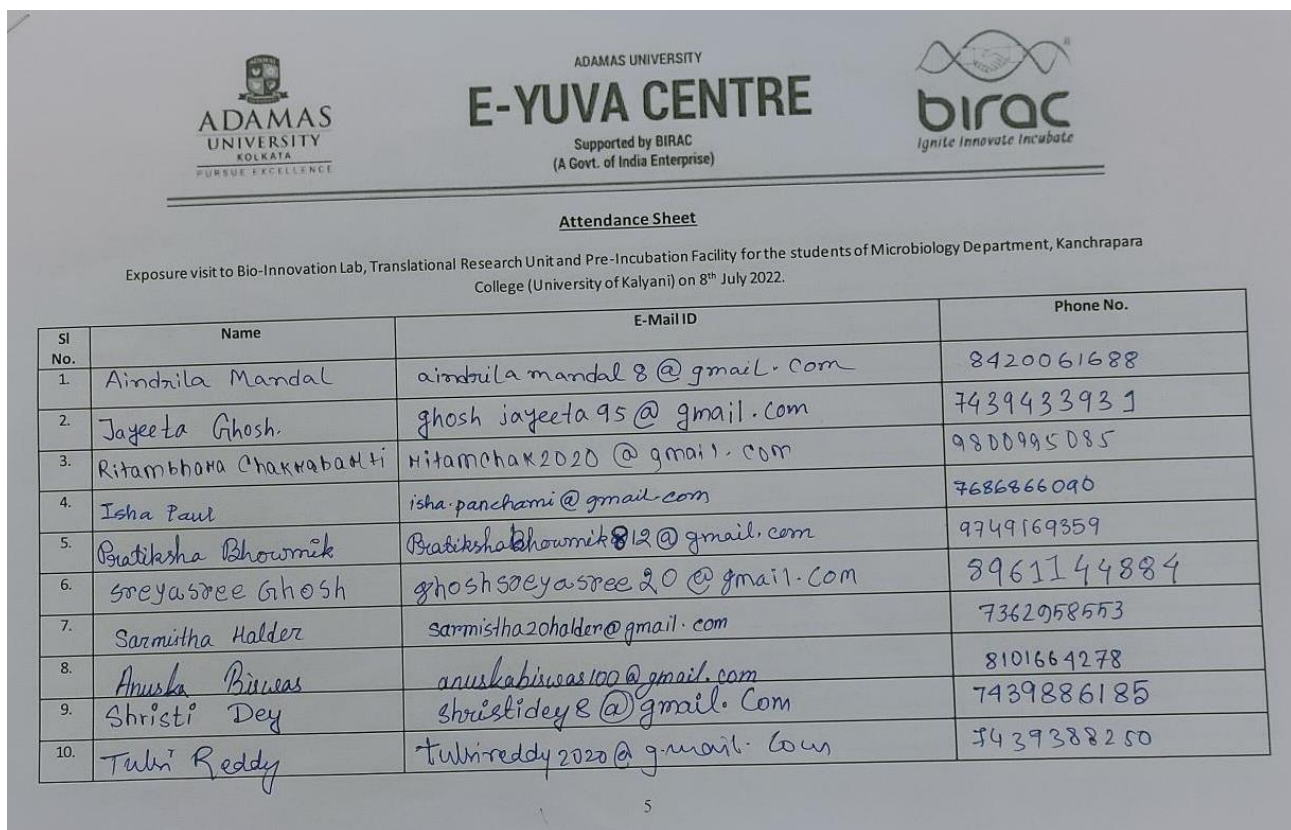 ADAMAS
UNIVERSITY
KOLKATA
PURSUE EXCELLENCE
ADAMAS UNIVERSITY
E-YUVA CENTRE
Supported by BIRAC
(A Govt. of India Enterprise)
birac
Ignite Innovate Incubate
Attendance Sheet
Exposure visit to Bio-Innovation Lab, Translational Research Unit and Pre-Incubation Facility for the students of Microbiology Department, Kanchrapara
College (University of Kalyani) on 8th July 2022.
Sl No. Name E-Mail ID Phone No.
1. Aindrila Mandal aindrila mandal 8 @ gmail. com 8420061688
2. Jayeeta Ghosh. ghosh jayeeta 95 @ gmail. com 7439433931
3. Ritambhara Chakrabarti ritamchak2020 @ gmail. com 9800995085
4. Isha Paul isha.panchami@gmail.com 7686866090
5. Pratiksha Bhowmik Pratikshabhowmik812@gmail.com 9749169359
6. Sreyasree Ghosh ghoshsreyasree20@gmail.com 8961144884
7. Sarmistha Halder sarmistha20halder@gmail.com 7362958553
8. Anuska Biswas anuskabiswas100@gmail.com 8101664278
9. Shristi Dey Shristidey8@gmail.Com 7439886185
10. Tulsi Reddy tulsireddy2020@gmail.com 7439388250
5